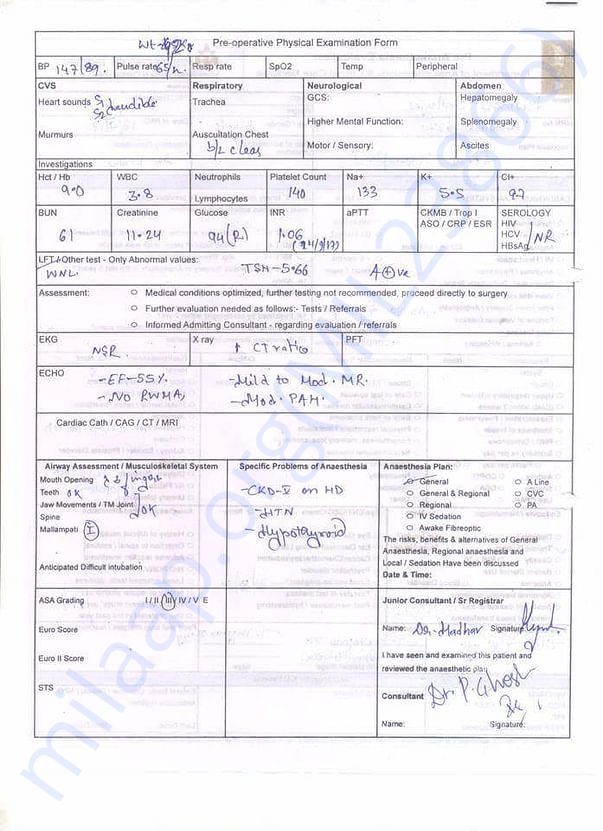 Pre-operative Physical Examination Form
BP 147/89. Pulse rate 65/m. Resp rate SpO2 Temp Peripheral
CVS Respiratory Neurological Abdomen
Heart sounds S1 S2 audible Trachea GCS: Hepatomegaly
Higher Mental Function: Splenomegaly
Murmurs Auscultation Chest Motor / Sensory: Ascites
b/L clear
Investigations
Hct / Hb WBC Neutrophils Platelet Count Na+ K+ Cl+
9.0 3.8 Lymphocytes 140 133 5.5 97
BUN Creatinine Glucose INR aPTT CKMB / Trop I SEROLOGY
ASO / CRP / ESR HIV
61 11.24 94 (R.) 1.06 HCV NR
HBsAg
LFT / Other test - Only Abnormal values:
WNL. TSH - 5.66 A +ve
Assessment: Medical conditions optimized, further testing not recommended, proceed directly to surgery
Further evaluation needed as follows:- Tests / Referrals
Informed Admitting Consultant - regarding evaluation / referrals
EKG X ray PFT
NSR ↑ CT ratio
ECHO
- EF - 55%. - Mild to Mod. MR.
- NO RWMA, - Mod. PAH.
Cardiac Cath / CAG / CT / MRI
Airway Assessment / Musculoskeletal System Specific Problems of Anaesthesia Anaesthesia Plan:
Mouth Opening General A Line
Teeth OK - CKD-V on HD General & Regional CVC
Jaw Movements / TM Joint OK Regional PA
Spine - HTN IV Sedation
Mallampati I - Hypothyroid Awake Fibreoptic
The risks, benefits & alternatives of General
Anaesthesia, Regional anaesthesia and
Anticipated Difficult intubation Local / Sedation Have been discussed
Date & Time:
ASA Grading I / II / III / IV / V E Junior Consultant / Sr Registrar
Euro Score Name: Dr. Madhav Signature
I have seen and examined this patient and
Euro II Score reviewed the anaesthetic plan
STS Consultant Dr. P. Ghosh
Name: Signature:
milaap.org